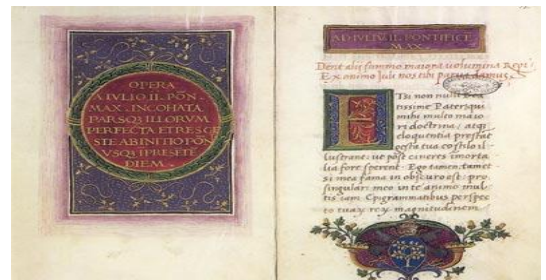 OPERA
A IVLIO. II. PON.
MAX. INCOHATA
PARSQ. ILLORVM
PERFECTA ET RES GE
STE AB INITIO PON
VSQ. I PRESETE
DIEM.
AD IVLIVM. II. PONTIFICE
MAX.
Dent alii summo maiora uolumina Regi
Ex animo Juli nos tibi parua damus.
ETsi non
tissime Pater
mihi multo maio
ri doctrina, atq.
eloquentia
gesta tua
lustrare: ut post cineres immorta
lia fore sperent. Ego tamen tamet
si mea fama in obscuro est: pro
singulari meo in te animo mul
tis iam Epigrammatibus perspec
to tuaq. rex magnitudinem